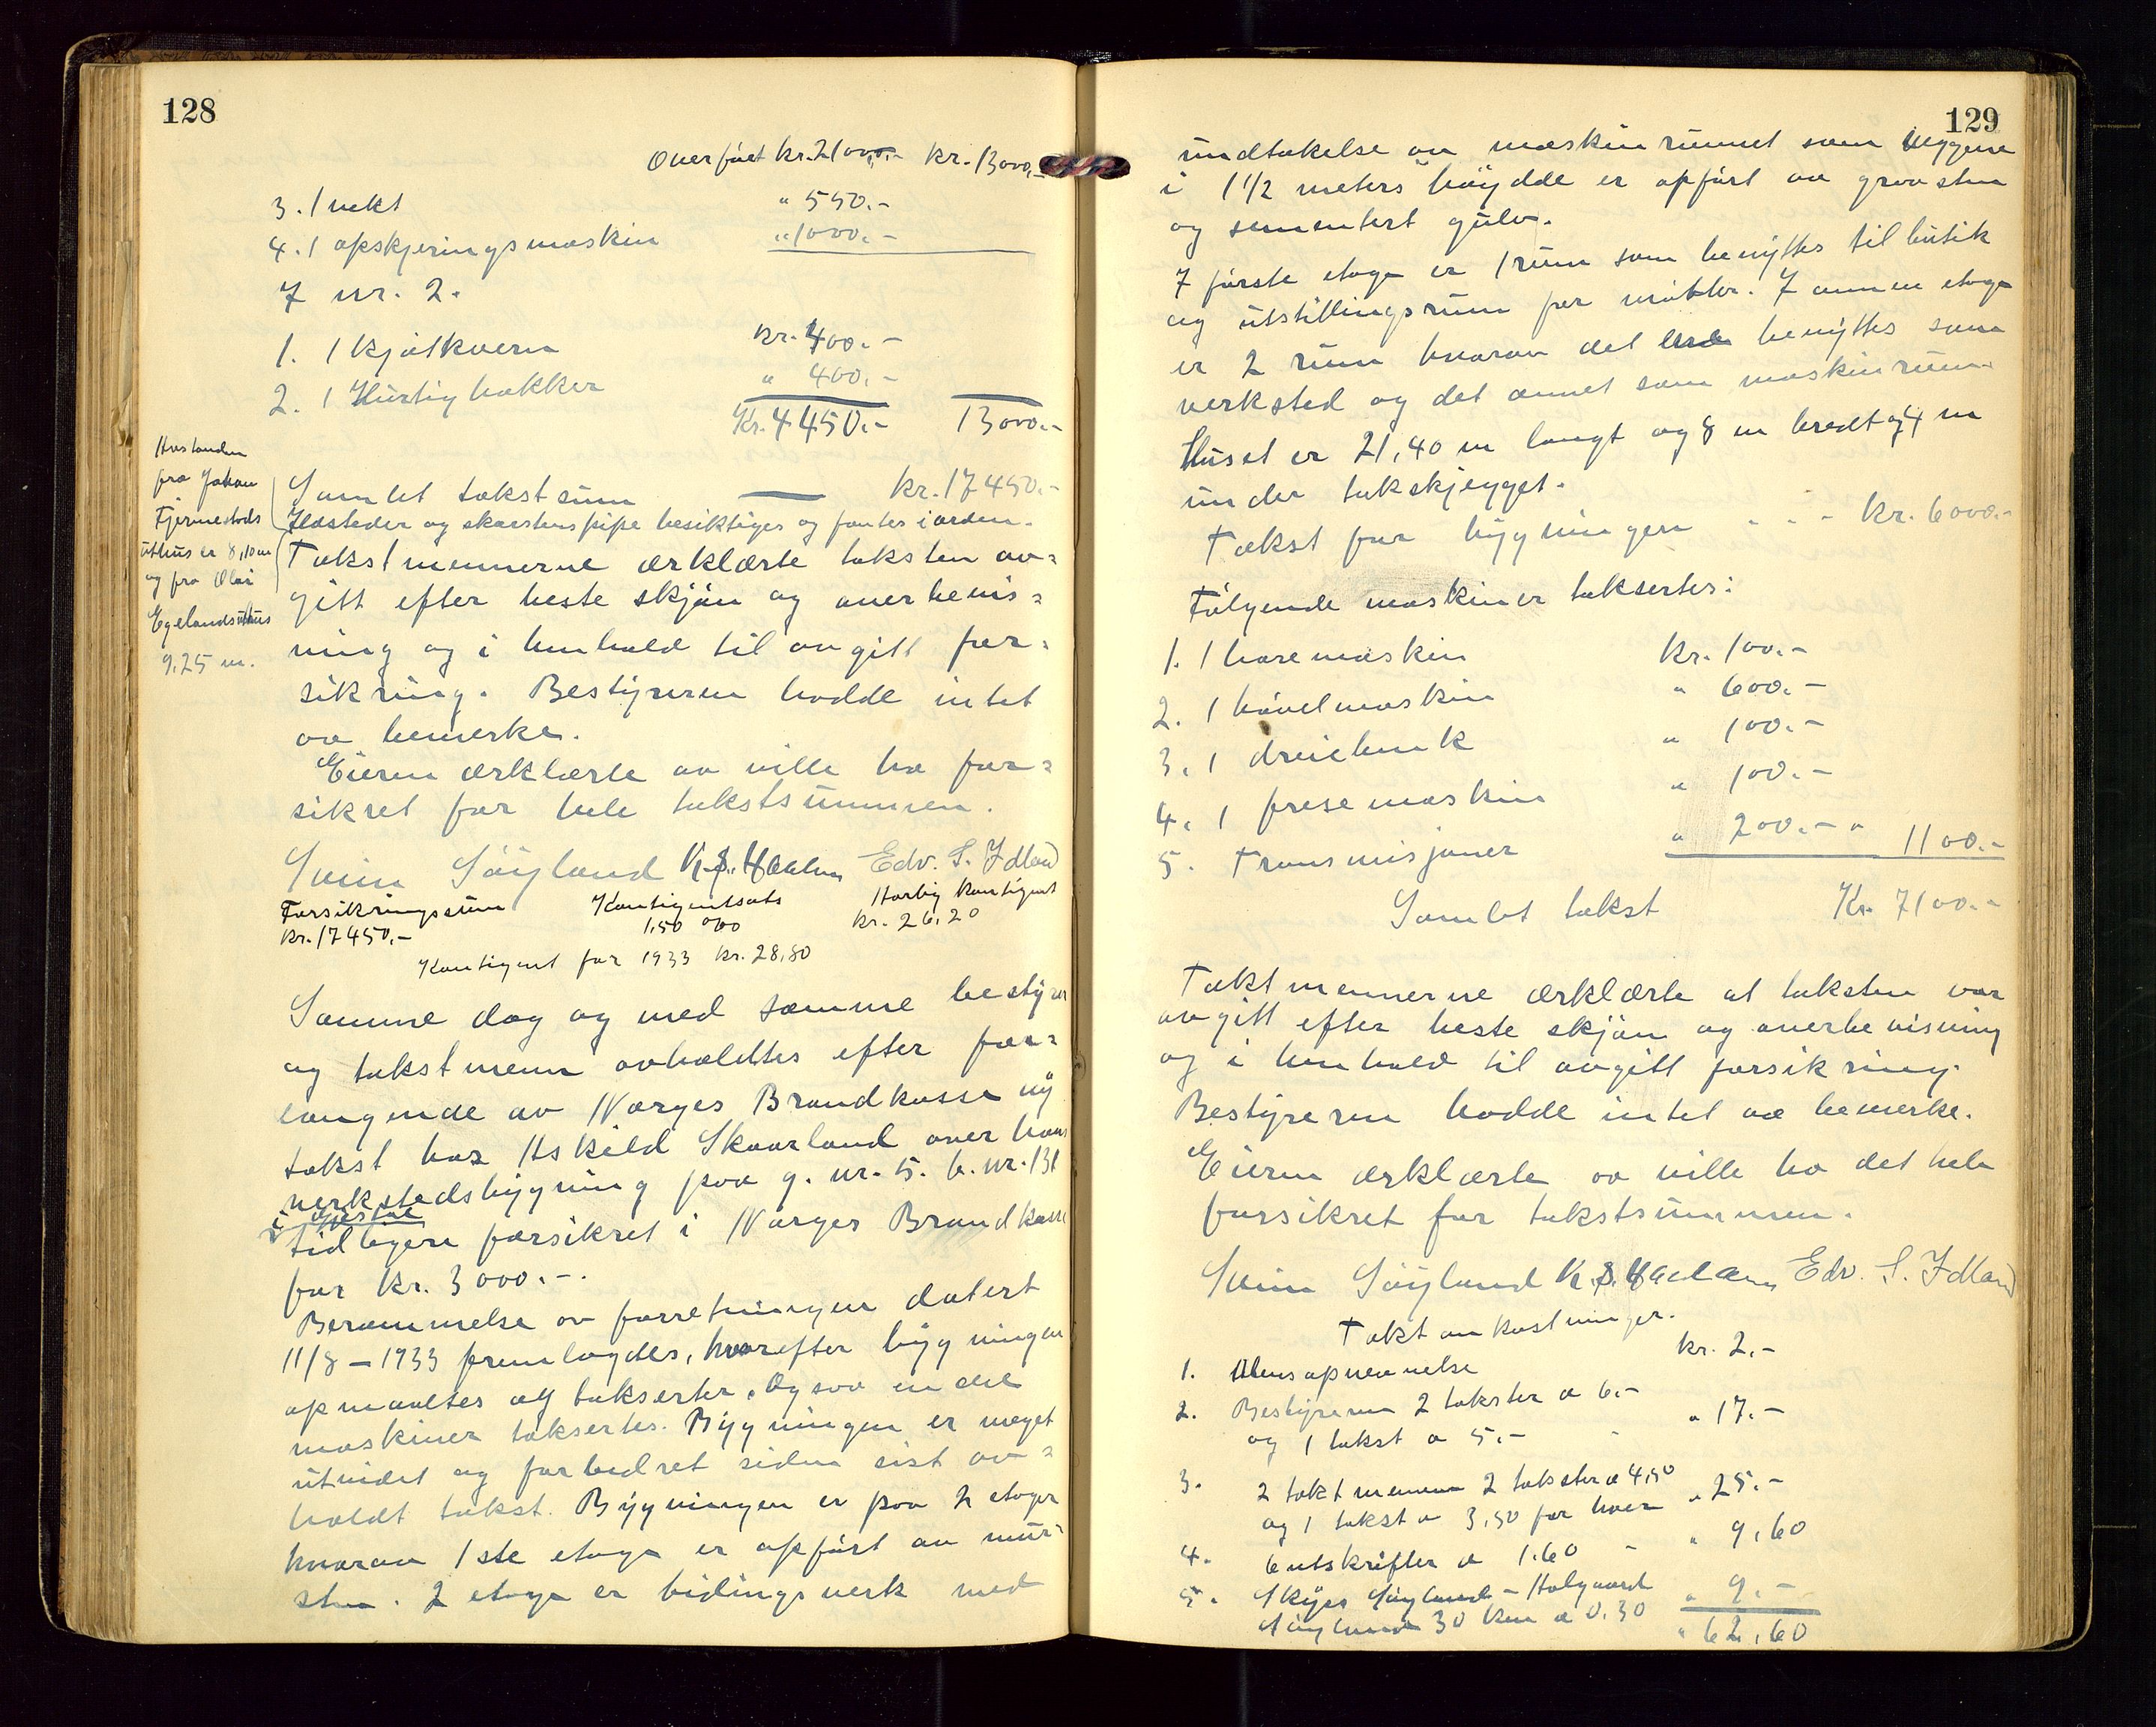 128
Overført kr. 2100,- kr. 13000,-
3. 1 vekt " 550.-
4. 1 opskjeringsmaskin " 1000.-
I nr. 2.
1. 1 kjøtkvern kr. 400.-
2. 1 Hurtighakker " 400.-
Kr. 4450.- 13000.-
Avstanden
fra Johan
Tjermestads
uthus er 8,10 m
og fra Olai
Egelands uthus
9.25 m.
Samlet takstsum kr. 17450.-
Ildsteder og skorstenspipe besiktiges og fantes i orden.
Takstmennerne erklærte taksten av-
gitt efter beste skjøn og overbevis-
ning og i henhold til avgitt for-
sikring. Bestyreren hadde intet
aa bemerke.
Eieren erklærte aa ville ha for-
sikret for hele takstsummen.
Svein Søyland K. S. Haaland Edv. S. Idland
Forsikringssum Kontigentsats Halvårlig kontigent
kr. 17450.- 1,50 ‰ kr. 26,20
Kontigent for 1933 kr. 28,80
Samme dag og med samme bestyrer
og takstmenn avholdtes efter for-
langende av Norges Brandkasse ny
takst hos Askild Skaarland over hans
verkstedsbygning paa g. nr. 5. b. nr. 131
i Gjesdal
tidligere forsikret i Norges Brandkasse
for kr. 3000.-.
Berammelse av forretningen datert
11/8 - 1933 fremlagdes, hvorefter bygningen
opmaaltes og taksertes. Ogsaa en del
maskiner taksertes. Bygningen er meget
utvidet og forbedret siden sist av-
holdt takst. Bygningen er paa 2 etager
hvorav 1ste etage er opført av mur-
sten. 2 etage er bidingsverk med
129
undtakelse av maskinrummet som veggene
i 1 1/2 meters høydde er opført av graasten
og sementert gulv.
I første etage er 1 rum som benyttes til butik
og utstillingsrum for møbler. I annen etage
er 2 rum hvorav det ene benyttes som
verksted og det annet som maskinrum.
Huset er 21,40 m langt og 8 m bredt og 4 m
under takskjegget.
Takst for bygningen - - - kr. 6000.-
Følgende maskiner taksertes:
1. 1 boremaskin kr. 100.-
2. 1 høvelmaskin " 600.-
3. 1 dreiebenk " 100.-
4. 1 fresemaskin " 100.-
5. Transmisjoner " 200.- " 1100.-
Samlet takst Kr. 7100.-
Takstmennerne erklærte at taksten var
avgitt efter beste skjøn og overbevisning
og i henhold til avgitt forsikring.
Bestyreren hadde intet aa bemerke.
Eieren erklærte aa ville ha det hele
forsikret for takstsummen.
Svein Søyland K. S. Haaland Edv. S. Idland
Takstomkostninger.
1. Mensopnevnelse kr. 2.-
2. Bestyreren 2 takster a 6.-
og 1 takst a 5.- - " 17.-
3. 2 takstmenn 2 takster a 4,50
og 1 takst a 3,50 for hver " 25.-
4. 6 utskrifter a 1.60 - " 9,60
5. Skyss Søyland - Aalgaard
Søyland 30 km a 0,30 " 9.-
" 62,60